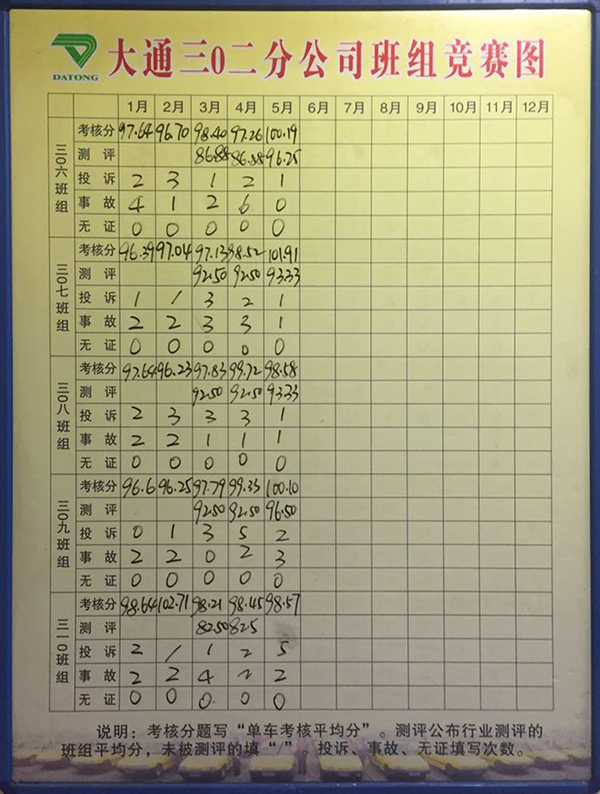 DATONG
大通三0二分公司班组竞赛图
1月 2月 3月 4月 5月 6月 7月 8月 9月 10月 11月 12月
三〇六班组
考核分 97.64 96.70 98.40 97.26 100.19
测评 86.88 86.88 96.25
投诉 2 3 1 2 1
事故 4 1 2 6 0
无证 0 0 0 0 0
三〇七班组
考核分 96.39 97.04 97.13 98.52 101.91
测评 92.50 92.50 93.33
投诉 1 / 3 2 1
事故 2 2 3 3 1
无证 0 0 0 0 0
三〇八班组
考核分 97.64 96.23 97.83 99.72 98.58
测评 92.50 92.50 93.33
投诉 2 3 3 3 1
事故 2 2 1 1 1
无证 0 0 0 0 0
三〇九班组
考核分 96.6 96.25 97.79 99.33 100.10
测评 92.50 92.50 96.50
投诉 0 1 3 5 2
事故 2 2 0 2 3
无证 0 0 0 0 0
三一〇班组
考核分 98.64 102.71 98.21 98.45 98.57
测评 82.50 82.5
投诉 2 / 1 2 5
事故 2 2 4 2 2
无证 0 0 0 0 0
说明：考核分题写“单车考核平均分”。测评公布行业测评的
班组平均分，未被测评的填“/”。投诉、事故、无证填写次数。